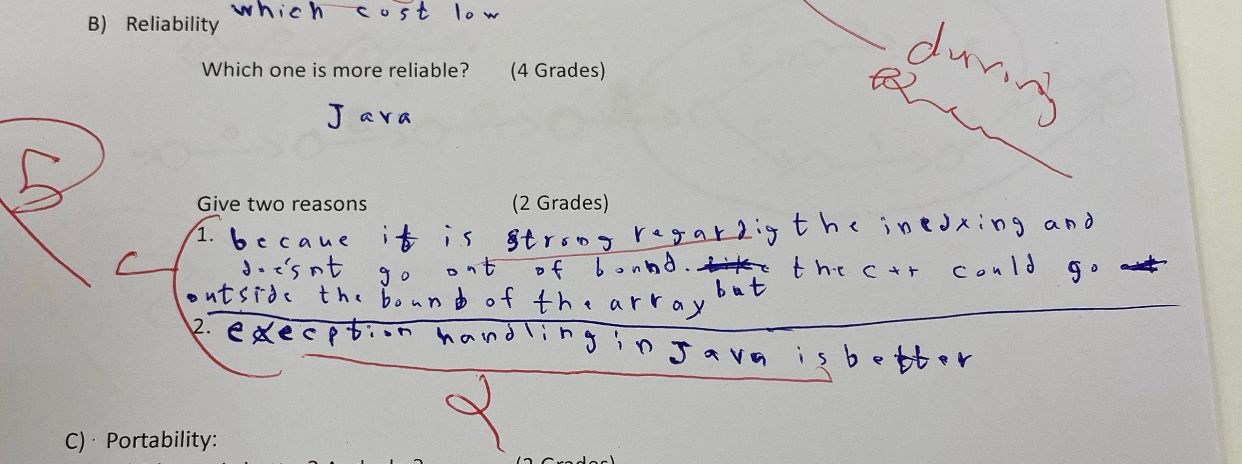 which cost low
B) Reliability
Which one is more reliable? (4 Grades)
Java
during
5
Give two reasons (2 Grades)
1. becaue it is strong regardig the inedxing and
does'nt go out of bound. the c++ could go
outside the bound of the array but
2. exception handling in Java is better
2
C) Portability: